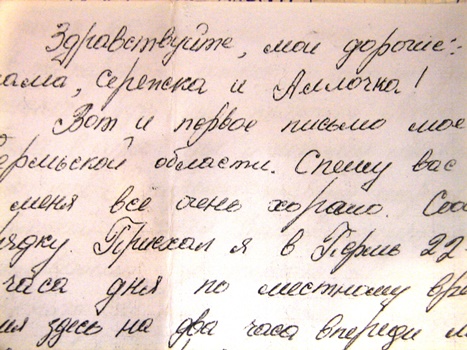 Здравствуйте, мои дорогие:
мама, Сережка и Аллочка!
Вот и первое письмо мое
Пермьской области. Спешу вас
меня всё очень хорошо. Соо
рядку. Приехал я в Пермь 22-
часа дня по местному вре
мя здесь на два часа впереди м